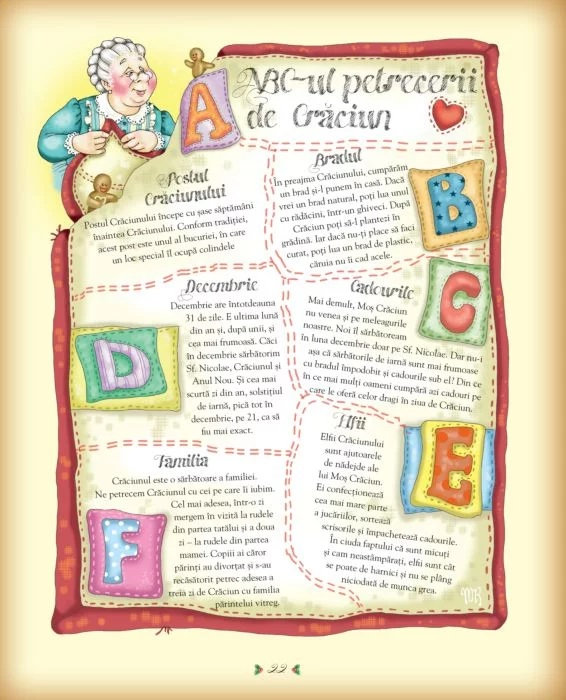 A
ABC-ul petrecerii
de Crăciun
Postul
Crăciunului
Postul Crăciunului începe cu șase săptămâni
înaintea Crăciunului. Conform tradiției,
acest post este unul al bucuriei, în care
un loc special îl ocupă colindele
B
Bradul
În preajma Crăciunului, cumpărăm
un brad și-l punem în casă. Dacă
vrei un brad natural, poți lua unul
cu rădăcini, într-un ghiveci. După
Crăciun poți să-l plantezi în
grădină. Iar dacă nu-ți place să faci
curat, poți lua un brad de plastic,
căruia nu îi cad acele.
C
Cadourile
Mai demult, Moș Crăciun
nu venea și pe meleagurile
noastre. Noi îl sărbătoream
în luna decembrie doar pe Sf. Nicolae. Dar nu-i
așa că sărbătorile de iarnă sunt mai frumoase
cu bradul împodobit și cadourile sub el? Din ce
în ce mai mulți oameni cumpără azi cadouri pe
care le oferă celor dragi în ziua de Crăciun.
D
Decembrie
Decembrie are întotdeauna
31 de zile. E ultima lună
din an și, după unii, și
cea mai frumoasă. Căci
în decembrie sărbătorim
Sf. Nicolae, Crăciunul și
Anul Nou. Și cea mai
scurtă zi din an, solstițiul
de iarnă, pică tot în
decembrie, pe 21, ca să
fiu mai exact.
E
Elfii
Elfii Crăciunului
sunt ajutoarele
de nădejde ale
lui Moș Crăciun.
Ei confecționează
cea mai mare parte
a jucăriilor, sortează
scrisorile și împachetează cadourile.
În ciuda faptului că sunt micuți
și cam neastâmpărați, elfii sunt cât
se poate de harnici și nu se plâng
niciodată de munca grea.
F
Familia
Crăciunul este o sărbătoare a familiei.
Ne petrecem Crăciunul cu cei pe care îi iubim.
Cel mai adesea, într-o zi
mergem în vizită la rudele
din partea tatălui și a doua
zi – la rudele din partea
mamei. Copiii ai căror
părinți au divorțat și s-au
recăsătorit petrec adesea a
treia zi de Crăciun cu familia
părintelui vitreg.
22